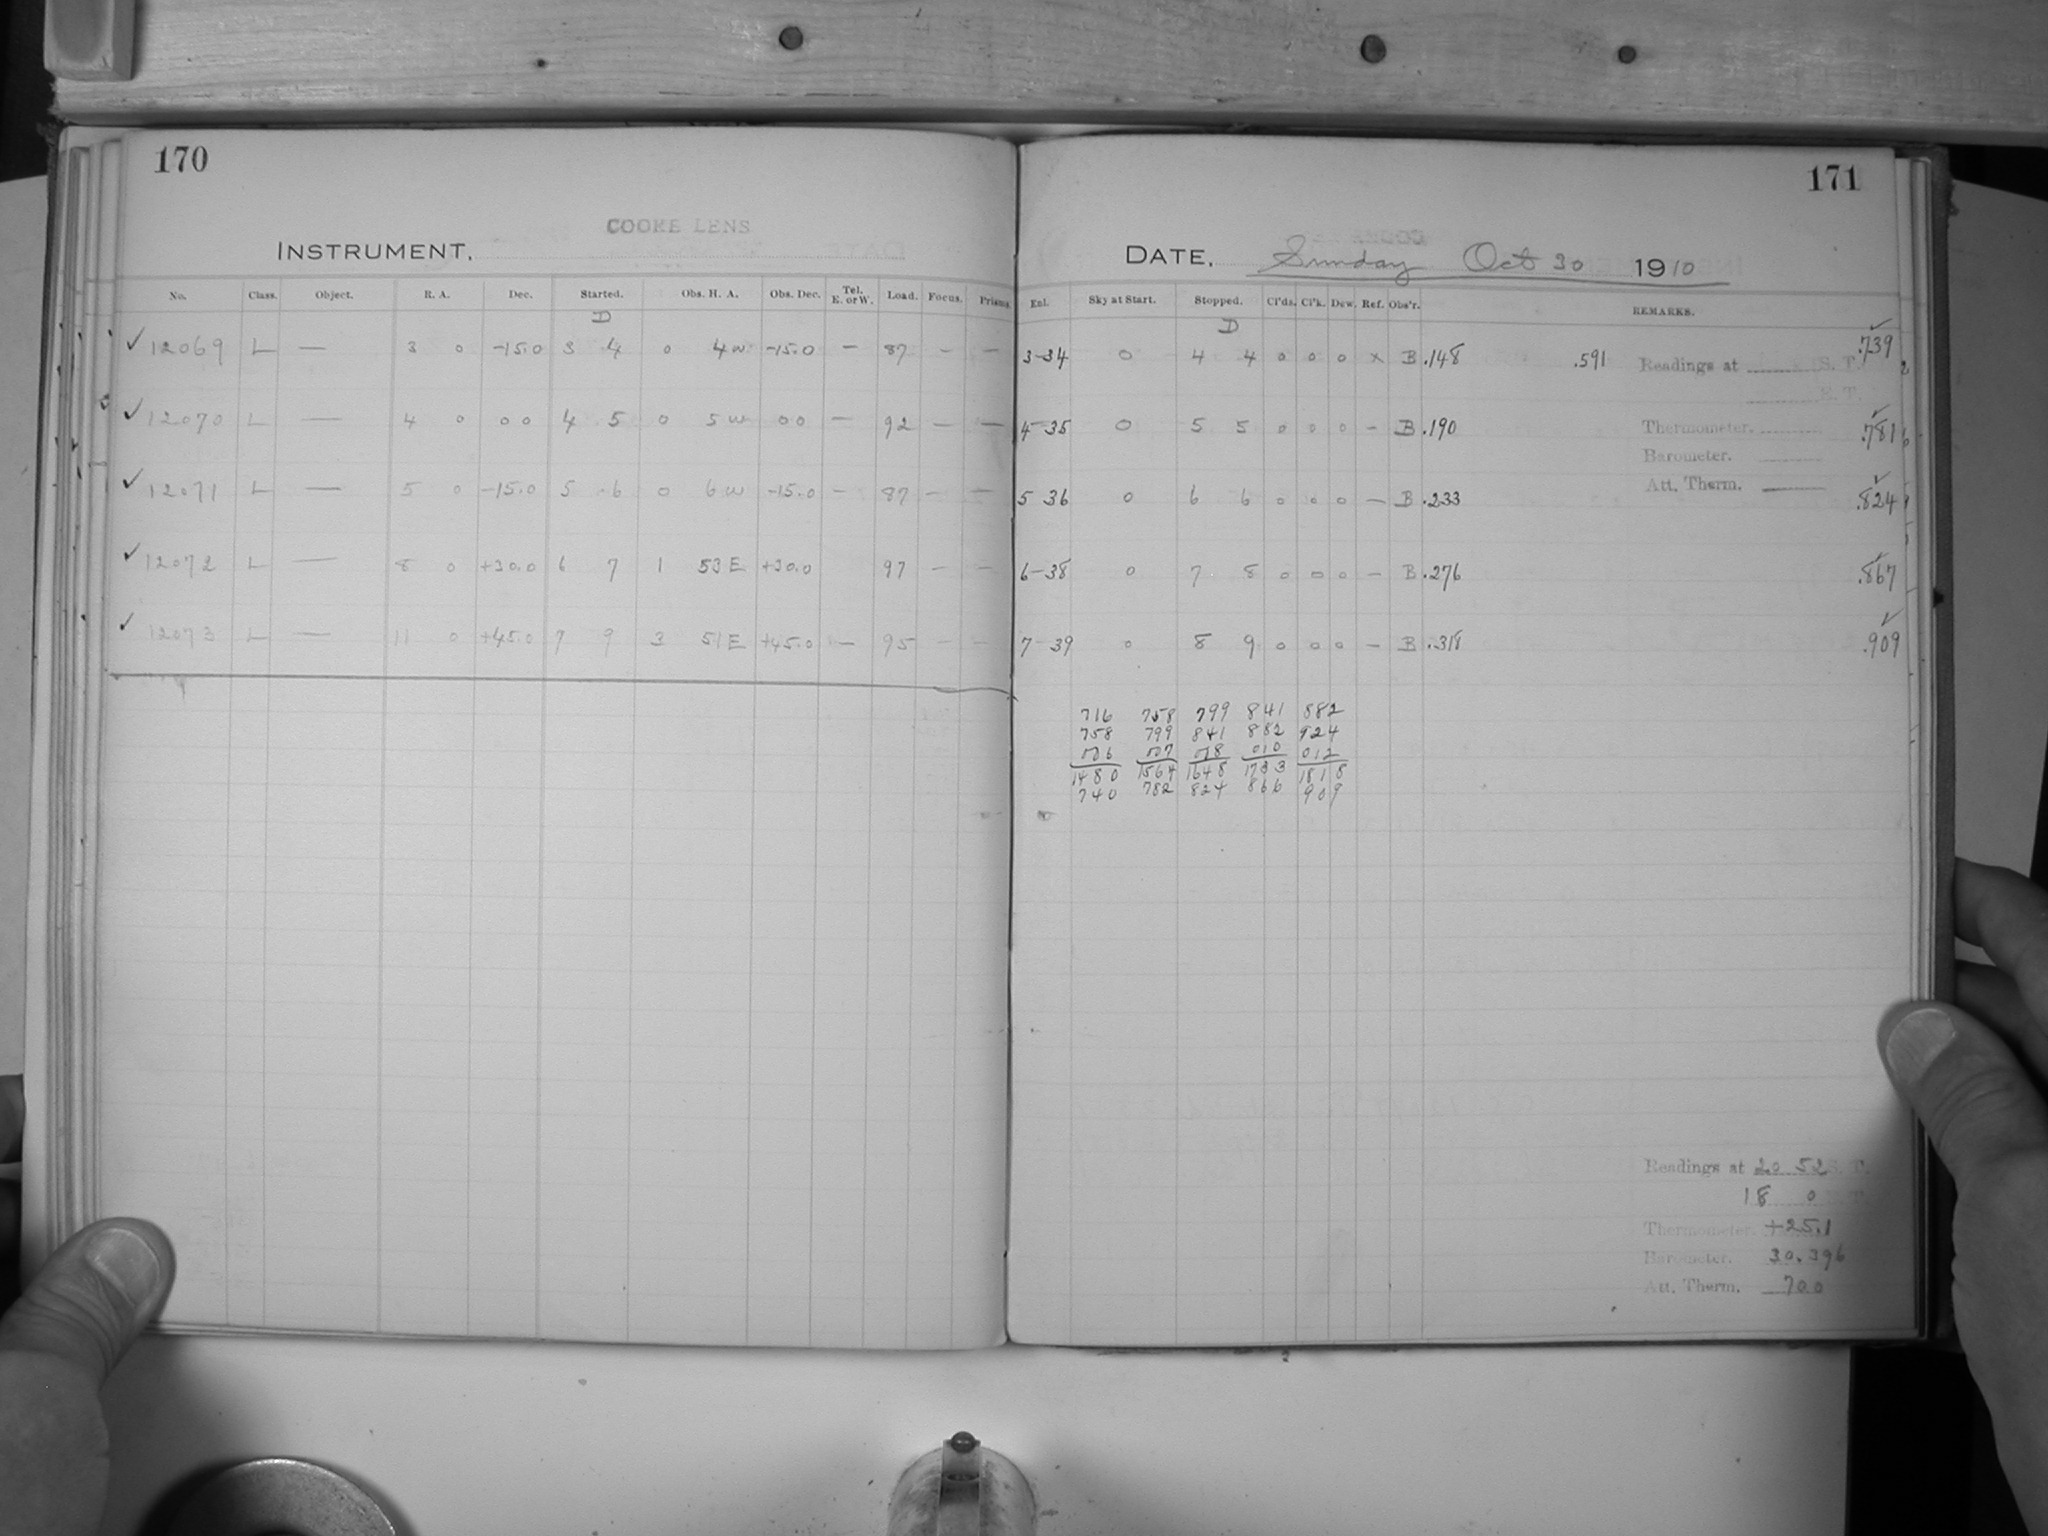 170
COOKE LENS
INSTRUMENT.
No. Class. Object. R. A. Dec. Started. Obs. H. A. Obs. Dec. Tel. E. or W. Load. Focus. Prisms.
D
✓ 12069 L — 3 0 -15.0 3 4 0 4 W -15.0 — 87 - —
✓ 12070 L — 4 0 0 0 4 5 0 5 W 0 0 — 92 — —
✓ 12071 L — 5 0 -15.0 5 6 0 6 W -15.0 — 87 - —
✓ 12072 L — 8 0 +30.0 6 7 1 53 E +30.0 97 - —
✓ 12073 L — 11 0 +45.0 7 9 3 51 E +45.0 — 95 - —
171
DATE. Sunday Oct 30 1910
Exl. Sky at Start. Stopped. Cl'ds. Cl'k. Dew. Ref. Obs'r. REMARKS.
D
3-34 0 4 4 0 0 0 x B .148 .591 Readings at S. T. .739 ✓
E. T.
4-35 0 5 5 0 0 0 - B .190 Thermometer. .781 ✓
Barometer.
5 36 0 6 6 0 0 0 — B .233 Att. Therm. .824 ✓
6-38 0 7 8 0 0 0 - B .276 .867 ✓
7-39 0 8 9 0 0 0 - B .318 .909 ✓
716 758 799 841 882
758 799 841 882 924
006 007 008 010 012
1480 1564 1648 1733 1818
740 782 824 866 909
Readings at 20 52 S. T.
18 0 E. T.
Thermometer. +25.1
Barometer. 30.396
Att. Therm. 700